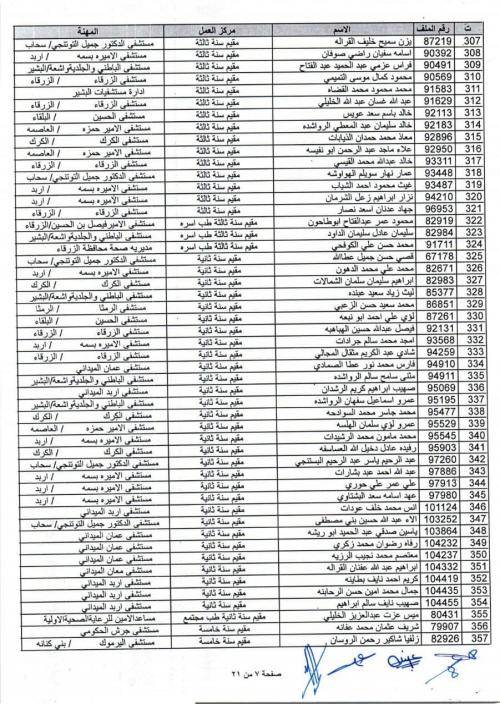 ت رقم الملف الاسم مركز العمل المهنة
307 87219 يزن سميح خليف القراله مقيم سنة ثالثة مستشفى الدكتور جميل التوتنجي/ سحاب
308 90392 اسامه سفيان راضي صوفان مقيم سنة ثالثة مستشفى الاميره بسمه / اربد
309 90491 فراس عزمي عبد الحميد عبد الفتاح مقيم سنة ثالثة مستشفى الباطني والجلديةواشعة/البشير
310 90569 محمود كمال موسى التميمي مقيم سنة ثالثة مستشفى الزرقاء / الزرقاء
311 91583 محمد محمود محمد القضاه مقيم سنة ثالثة ادارة مستشفيات البشير
312 91629 عبد الله غسان عبد الله الخليلي مقيم سنة ثالثة مستشفى الزرقاء / الزرقاء
313 92113 خالد باسم سعد عويس مقيم سنة ثالثة مستشفى الحسين / البلقاء
314 92183 خالد سليمان عبد المعطي الرواشده مقيم سنة ثالثة مستشفى الامير حمزه / العاصمه
315 92896 معاذ محمد حمدان الذيابات مقيم سنة ثالثة مستشفى الكرك / الكرك
316 92950 علاء ماجد عبد الرحمن ابو نفيسه مقيم سنة ثالثة مستشفى الزرقاء / الزرقاء
317 93311 خالد عبدالله محمد القيسي مقيم سنة ثالثة مستشفى الزرقاء / الزرقاء
318 93448 عمار نهار سويلم الهواوشه مقيم سنة ثالثة مستشفى الدكتور جميل التوتنجي/ سحاب
319 93487 غيث محمود احمد الشياب مقيم سنة ثالثة مستشفى الاميره بسمه / اربد
320 94210 نزار ابراهيم زعل الشرمان مقيم سنة ثالثة مستشفى الاميره بسمه / اربد
321 96953 جهاد عدنان اسعد نصار مقيم سنة ثالثة مستشفى الزرقاء / الزرقاء
322 82919 محمود عمر عبدالفتاح ابوطاحون مقيم سنة ثالثة طب اسره مستشفى الاميرفيصل بن الحسين/الزرقاء
323 82984 سليمان عادل سليمان الداود مقيم سنة ثالثة طب اسره مستشفى الباطني والجلديةواشعة/البشير
324 91711 محمد حسن علي الكوفحي مقيم سنة ثالثة طب اسره مديريه صحة محافظة الزرقاء
325 67178 قصي حسن جميل عطاالله مقيم سنة ثانية مستشفى الدكتور جميل التوتنجي/ سحاب
326 82671 محمد علي محمد الدهون مقيم سنة ثانية مستشفى الاميره بسمه / اربد
327 82983 ابراهيم سليمان سلمان الشمالات مقيم سنة ثانية مستشفى الكرك / الكرك
328 85377 ليث زياد سعيد عبنده مقيم سنة ثانية مستشفى الباطني والجلديةواشعة/البشير
329 86851 محمد سعيد حسن الزعبي مقيم سنة ثانية مستشفى الرمثا / الرمثا
330 87261 لؤي علي احمد ابو نيعه مقيم سنة ثانية مستشفى الحسين / البلقاء
331 92131 فيصل عبدالله حسين الهباهبه مقيم سنة ثانية مستشفى الزرقاء / الزرقاء
332 93568 امجد محمد سالم جرادات مقيم سنة ثانية مستشفى الاميره بسمه / اربد
333 94259 شادي عبد الكريم مثقال المجالي مقيم سنة ثانية مستشفى الكرك / الكرك
334 94910 فارس محمد نور عطا الصمادي مقيم سنة ثانية مستشفى عمان الميداني
335 94911 مثنى سامح سالم الرواشده مقيم سنة ثانية مستشفى الباطني والجلديةواشعة/البشير
336 95069 صهيب ابراهيم كريم الرشدان مقيم سنة ثانية مستشفى اربد الميداني
337 95195 عمرو اسماعيل سفهان الرواشده مقيم سنة ثانية مستشفى الباطني والجلديةواشعة/البشير
338 95477 محمد جاسر محمد السوادحه مقيم سنة ثانية مستشفى الكرك / الكرك
339 95529 عمرو لؤي سلمان الهلسه مقيم سنة ثانية مستشفى الامير حمزه / العاصمه
340 95545 محمد مامون محمد الرشيدات مقيم سنة ثانية مستشفى الاميره بسمه / اربد
341 95903 رفيده عادل دخيل الله العساسفه مقيم سنة ثانية مستشفى الكرك / الكرك
342 97260 عبد الرحيم ياسر عبد الرحيم البستنجي مقيم سنة ثانية مستشفى الدكتور جميل التوتنجي/ سحاب
343 97886 عبد الله احمد عبد بشارات مقيم سنة ثانية مستشفى الاميره بسمه / اربد
344 97913 علي عمر علي حوري مقيم سنة ثانية مستشفى الاميره بسمه / اربد
345 97980 عهد اسامه سعد البشتاوي مقيم سنة ثانية مستشفى الاميره بسمه / اربد
346 101124 انس محمد خلف عودات مقيم سنة ثانية مستشفى اربد الميداني
347 103252 الاء عبد الله حسين بني مصطفى مقيم سنة ثانية مستشفى الدكتور جميل التوتنجي/ سحاب
348 103864 ياسين صدقي عبد الحميد ابو ريشه مقيم سنة ثانية مستشفى عمان الميداني
349 104232 رفاه رضوان محمد زكري مقيم سنة ثانية مستشفى عمان الميداني
350 104237 معتصم محمد نجيب الرزيه مقيم سنة ثانية مستشفى عمان الميداني
351 104332 ابراهيم عبد الله عفنان القراله مقيم سنة ثانية مستشفى معان الميداني
352 104419 كريم احمد نايف بطاينه مقيم سنة ثانية مستشفى اربد الميداني
353 104435 جمال محمد امين حسن الرحابنه مقيم سنة ثانية مستشفى اربد الميداني
354 104455 صهيب نايف سالم ابراهيم مقيم سنة ثانية مستشفى اربد الميداني
355 80431 ميس عزت عبدالعزيز الخليلي مقيم سنة ثانية طب مجتمع مساعدالامين للرعايةالصحيةالاولية
356 79907 شريف عثمان محمد عفانه مقيم سنة خامسة مستشفى جرش الحكومي
357 82926 زلفيا شاكير رحمن الروسان مقيم سنة خامسة مستشفى اليرموك / بني كنانه
صفحة ٧ من ٢١